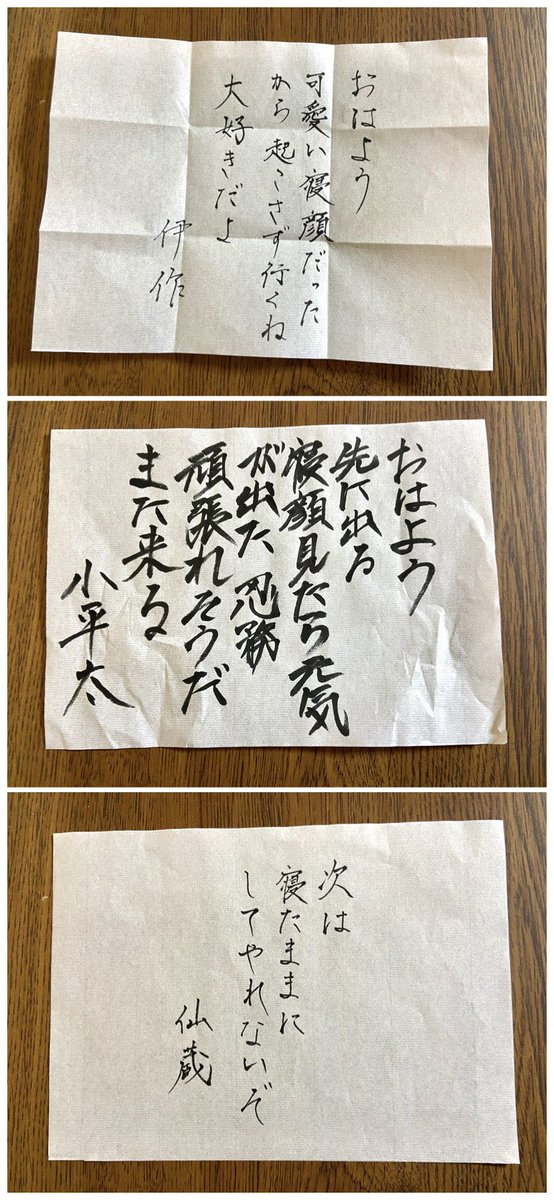 おはよう
可愛い寝顔だった
から起こさず行くね
大好きだよ
伊作
おはよう
先に出る
寝顔見たら元気
が出た 忍務
頑張れそうだ
また来る
小平太
次は
寝たままに
してやれないぞ
仙蔵